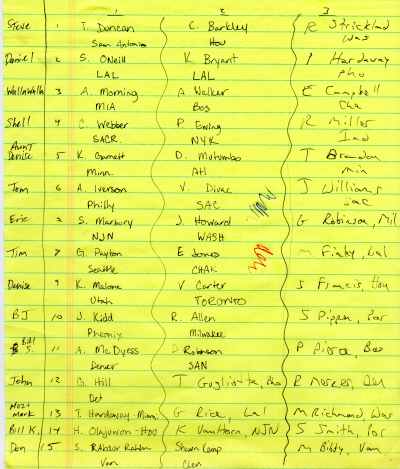 1 2 3
Steve 1 T. Duncan C. Barkley R Strickland
San Antonio Hou Was
Daniel 2 S. ONeill K. Bryant P Hardaway
LAL LAL Pho
WallaWalla 3 A. Morning A Walker E Campbell
MIA Bos Cha
Shell 4 C. Webber P. Ewing R Miller
SACR. NYK Ind
Aunt
Denise 5 K. Garnett D. Mutumbo T Brandon
Minn. Atl Min
Tom 6 A. Iverson V. Divac J Williams
Philly SAC Sac
Eric 7 S. Marbury J. Howard G Robinson, Mil
NJN WASH
Tim 8 G. Payton E Jones M Finley, Dal
Seattle CHAR
Denise 9 K. Malone V Carter S Francis, Hou
Utah TORONTO
BJ 10 J. Kidd R. Allen S Pippen, Por
Pheonix Milwakee
Bill
S. 11 A. McDyess D Robinson P Pierce, Bos
Denver SAN
John 12 G. Hill T Gugliotta, Pho
Det
Mark 13 T. Hardaway-Miami G Rice, Lal M Richmond Was
Bill K. 14 H. Olajuwon-Hou K VanHorn, NJN S Smith, Por
Don 15 S. RAbdur Rahim Shawn Kemp M Bibby, Van
Van Clev